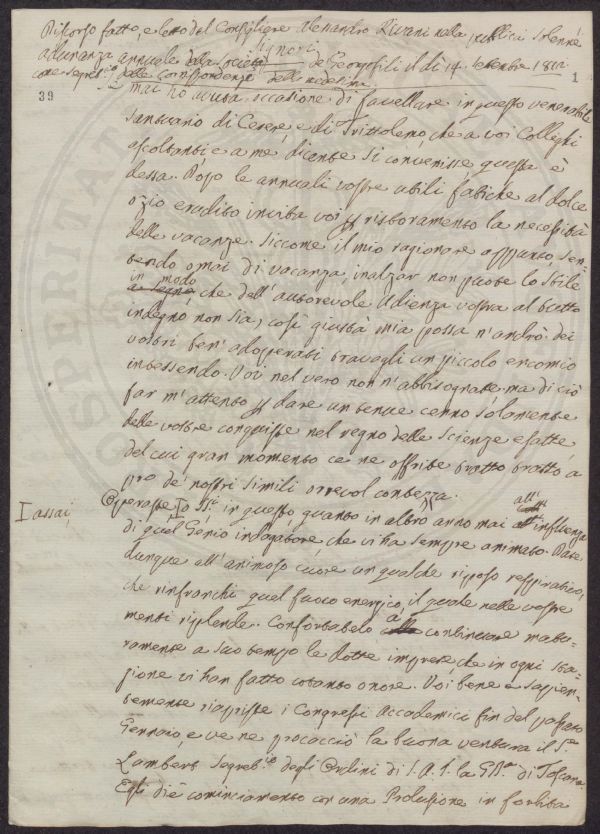 Discorso fatto, e letto del Consigliere Alessandro Rivani nella pubblica solenne
adunanza annuale della Società de Georgofili il dì 14. Settembre 1811
come Segret.io delle Corrispondenze della medesima
Signori
1
39
mai ho avuta occasione di favellare in questo venerabile
Santuario di Cerere, e di Trittolemo, che a voi Colleghi
ascoltanti e a me, dicente si convenisse questa è
dessa. Dopo le annuali vostre utili fatiche al dolce
ozio erudito invita voi per ristoramento la necessità
delle vacanze. Siccome il mio ragionare appunto, sen-
tendo omai di vacanza, inalzar non puote lo stile
in modo
a segno che dell'autorevole Udienza vostra al tutto
indegno non sia, così giusta mia possa n'andrò dei
vostri ben' adoperati travagli un piccolo encomio
intessendo. Voi nel vero non n'abbisognate, ma di ciò
far m'attento per dare un tenue cenno solamente
delle vostre conquiste nel regno delle Scienze esatte
del cui gran momento ce ne offrite tratto tratto a
prò de' nostri simili orrevol contezza.
I assai
Operaste I o SS.ri in questo quanto in altro anno mai all' influenza
all'
di quel Genio indagatore che vi ha sempre animato. Date
dunque all'animoso cuore un qualche riposo respirativo,
che rinfranchi quel fuoco energico, il quale nelle vostre
menti risplende. Confortatelo a continuare matu-
ramente a suo tempo le dotte imprese, che in ogni sta-
gione vi han fatto cotanto onore. Voi bene e sapien-
temente riapriste i Congressi Accademici fin del passato
Gennaio e ve ne procacciò la buona ventura il S.re
Lambert Segret.io degli Ordini di S. A. I. la GD.a di Toscana.
Egli diè cominciamento con una Prolusione in forbita